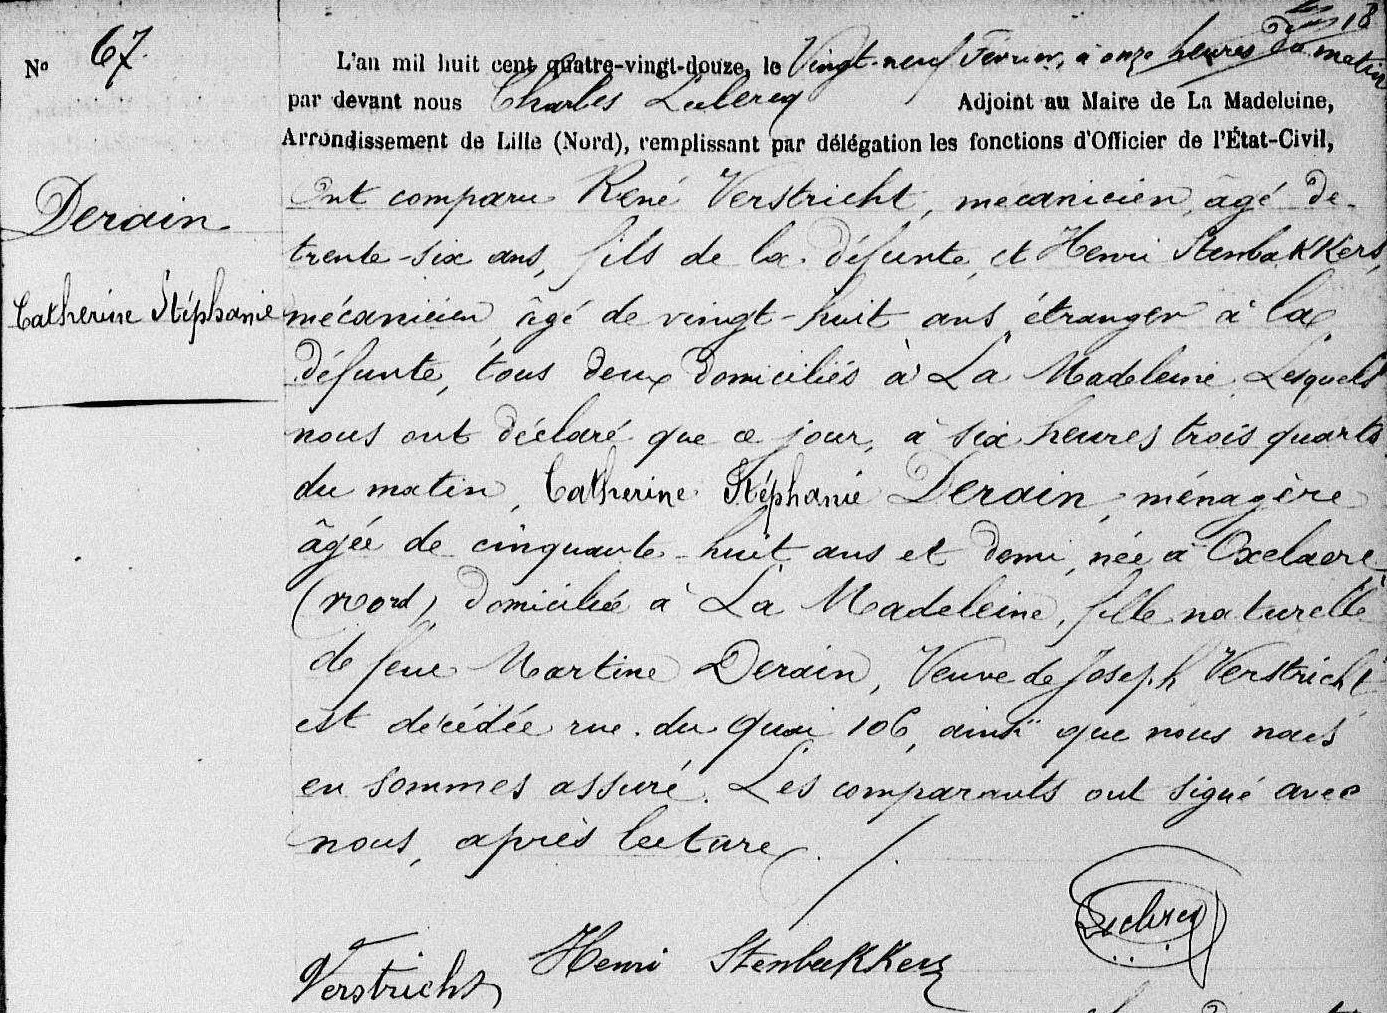 18
Nº 67.
L'an mil huit cent quatre-vingt-douze, le Vingt-neuf Février, à onze heures du matin
par devant nous Charles Leclercq Adjoint au Maire de La Madeleine,
Arrondissement de Lille (Nord), remplissant par délégation les fonctions d'Officier de l'État-Civil,
Derain
Catherine Stéphanie
Ont comparu René Verstricht, mécanicien, âgé de
trente-six ans, fils de la défunte, et Henri Stenbakkers,
mécanicien, âgé de vingt-huit ans étranger à la
défunte, tous deux domiciliés à La Madeleine Lesquels
nous ont déclaré que ce jour, à six heures trois quarts
du matin, Catherine Stéphanie Derain, ménagère
âgée de cinquante-huit ans et demi, née à Oxelaere
(Nord), domiciliée à La Madeleine, fille naturelle
de feue Martine Derain, Veuve de Joseph Verstricht
est décédée rue du Quai 106, ainsi que nous nous
en sommes assuré. Les comparants ont signé avec
nous, après lecture.
Leclercq
Verstricht Henri Stenbakkers